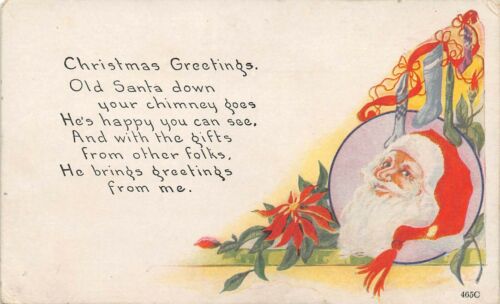 Christmas Greetings.
Old Santa down
your chimney goes
He's happy you can see,
And with the gifts
from other folks,
He brings greetings
from me.
465C